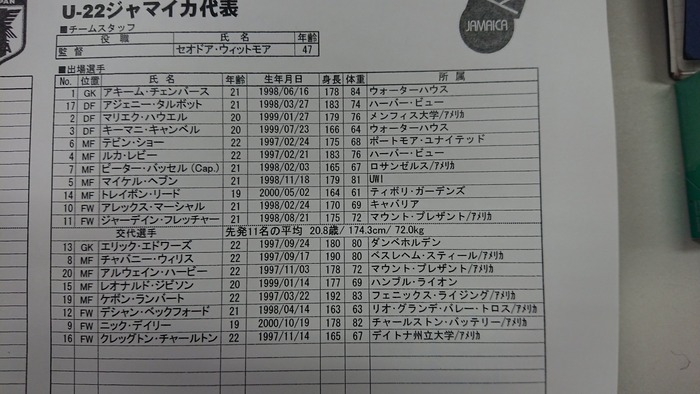 PAN
U-22ジャマイカ代表
JAMAICA
■チームスタッフ
役職 氏名 年齢
監督 セオドア・ウィットモア 47
■出場選手
No. 位置 氏名 年齢 生年月日 身長 体重 所属
1 GK アキーム・チェンバース 21 1998/06/16 178 84 ウォーターハウス
17 DF アジェニー・タルボット 21 1998/03/27 183 74 ハーバー・ビュー
2 DF マリエク・ハウエル 20 1999/01/27 179 76 メンフィス大学/アメリカ
3 DF キーマニ・キャンベル 20 1999/07/23 166 64 ウォーターハウス
6 MF テビン・ショー 22 1997/02/24 175 68 ポートモア・ユナイテッド
4 MF ルカ・レビー 22 1997/02/21 183 76 ハーバー・ビュー
7 MF ピーター・バッセル(Cap.) 21 1998/02/03 165 67 ロサンゼルス/アメリカ
5 MF マイケル・ヘブン 21 1998/11/18 179 81 UWI
14 MF トレイボン・リード 19 2000/05/02 164 61 ティボリ・ガーデンズ
10 FW アレックス・マーシャル 21 1998/02/24 170 69 キャバリア
11 FW ジャーデイン・フレッチャー 21 1998/08/21 175 72 マウント・プレザント/アメリカ
交代選手 先発11名の平均 20.8歳/ 174.3cm/ 72.0kg
13 GK エリック・エドワーズ 22 1997/09/24 180 80 ダンベホルデン
8 MF チャバニー・ウィリス 22 1997/09/17 190 80 ベスレヘム・スティール/アメリカ
20 MF アルウェイン・ハービー 22 1997/11/03 178 72 マウント・プレザント/アメリカ
15 MF レオナルド・ジビソン 20 1999/01/14 177 69 ハンブル・ライオン
19 MF ケボン・ランバート 22 1997/03/22 192 83 フェニックス・ライジング/アメリカ
12 FW デシャン・ベックフォード 21 1998/04/14 163 63 リオ・グランデ・バレー・トロス/アメリカ
9 FW ニック・デイリー 19 2000/10/19 178 82 チャールストン・バッテリー/アメリカ
16 FW クレッグトン・チャールトン 22 1997/11/14 165 67 デイトナ州立大学/アメリカ